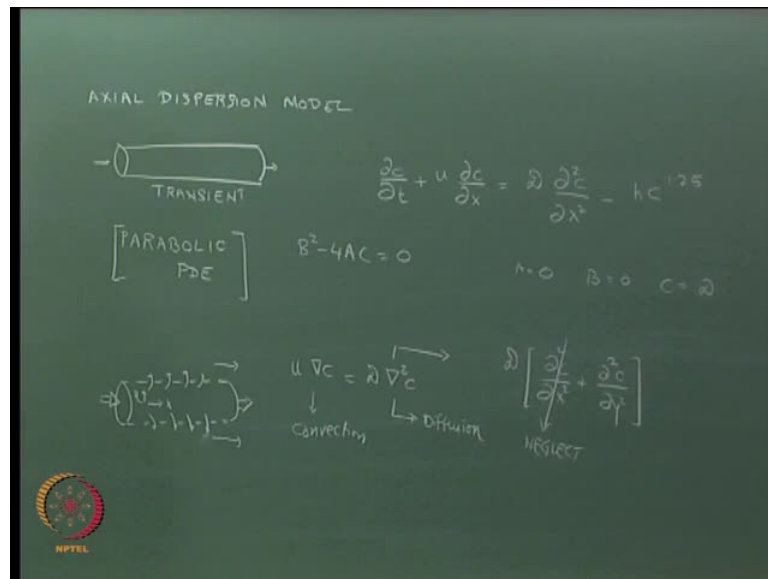 AXIAL DISPERSION MODEL
TRANSIENT
∂c/∂t + u ∂c/∂x = D ∂²c/∂x² - kc^1.25
[PARABOLIC PDE]
B² - 4AC = 0
A=0 B=0 C=D
u ∇c = D ∇²c
Convection
Diffusion
D [∂²c/∂x² + ∂²c/∂y²]
NEGLECT
y
x
NPTEL